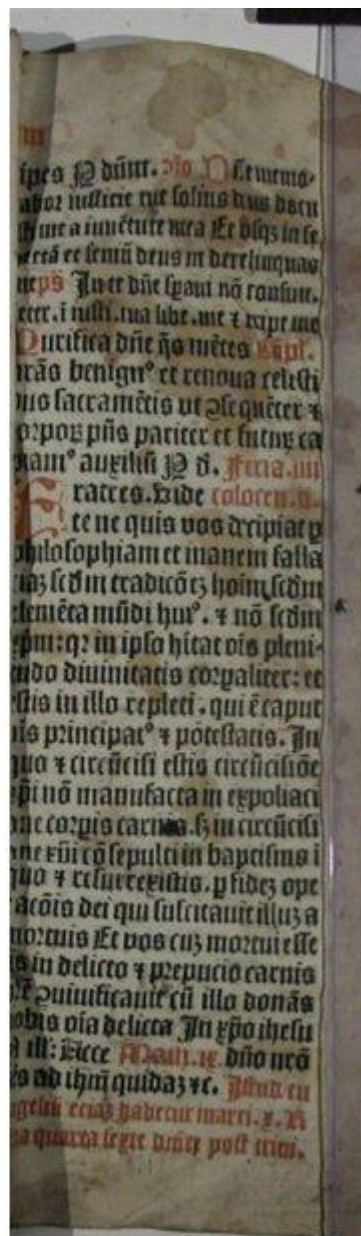 ipes P dūm. ꝯīo. D s. memo-
abor iusticie tue solius deus docu
me a iuuētute mea Et vsqz in se
ectā et semū deus ne derelinquas
me ps In te dñe spaui nō
eter. i iusti. tua libe. me ⁊ eripe me
Purifica dñe q̄s mētes Cōpl.
nrās benignꝰ et renoua celesti
bus sacramētis vt ꝯsequēter ⁊
orpoꝝ pñs pariter et futuꝝ ca
piamꝰ auxiliū P d. Feria. iiii
Fratres. Vide colocen. ii.
te ne quis vos decipiat ꝑ
philosophiam et inanem falla
ciaz scdm tradicōez hoim. scdm
elemēta mūdi huiꝰ. ⁊ nō scdm
xpm: qꝛ in ipso hitat ois pleni-
tudo diuinitatis corꝑaliter: et
estis in illo repleti. qui ē caput
ois principatꝰ ⁊ potestatis. In
quo ⁊ circūcisi estis circūcisiōe
nō manufacta in expoliaci
one corꝑis carnis. sꝫ in circūcisi
one xp̄i cōsepulti in baptismo i
quo ⁊ resurrexistis. ꝑ fidez ope
racōis dei qui suscitauit illuz a
mortuis Et vos cuz mortui esse
tis in delicto ⁊ prepucio carnis
vre ꝯuiuificauit cū illo donās
vobis oia delicta In xp̄o ihesu
ill: Ecce Math. ix. dño nrō
es ad ihm quidaz ⁊c. Istud eu
angeliū eciaz habetur marci. x. R
ra quarta sexte dñice post trini.